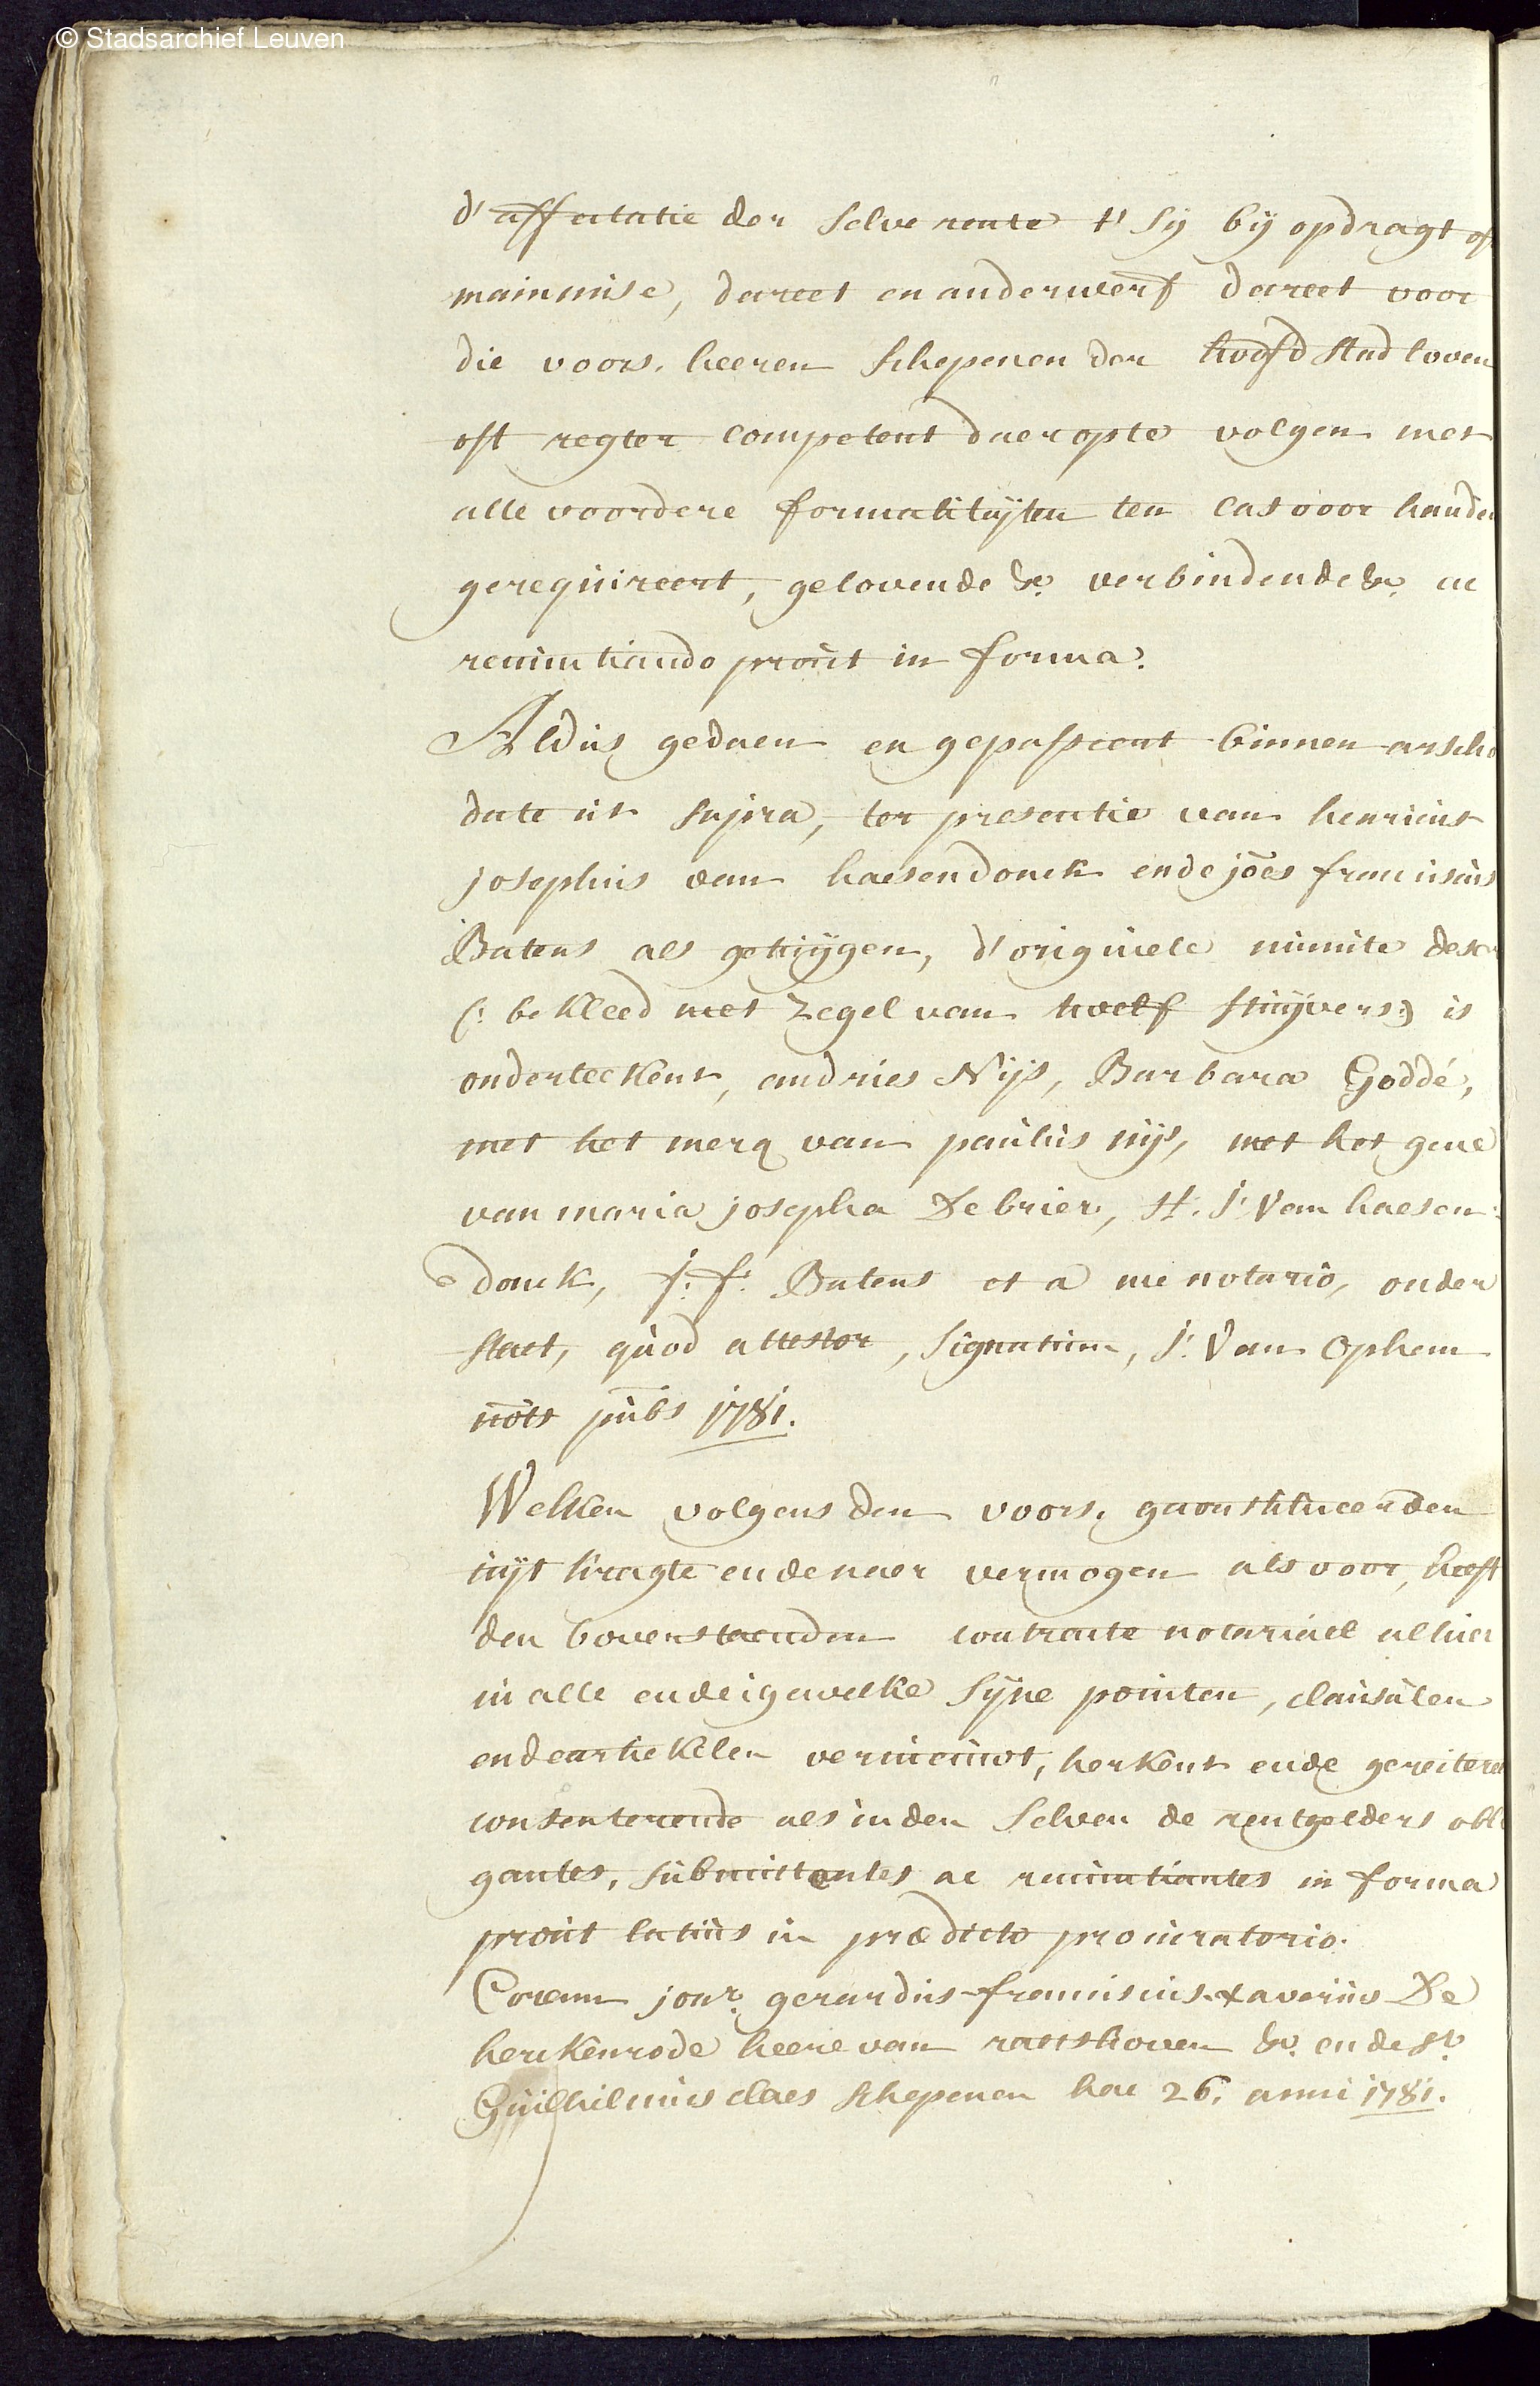 © Stadsarchief Leuven
d'affectatie der selve rente t'sij bij opdragt of
mainmise, decreet en anderwerf decreet voor
die voors. heeren schepenen der hoofdstad loven
oft regter competent daer op te volgen met
alle voordere formalitijten ten cas voor handen
gerequireert, gelovende &c. verbindende &c. ac
renuntiando proùt in forma.
Aldùs gedaen en gepasseert binnen arscho
date ùt supra, ter presentie van henricus
josephùs van haesendonck ende jōēs franciscùs
Batens als getùijgen, d'originele minùte deser
(: bekleed met zegel van twelf stùijvers:) is
onderteekent, andries Nijs, Barbara Goddé,
met het merq van paùlùs nijs, met het gene
van maria josepha De brier, H. J. Van haesen:
donck, j: f: Batens et a me notario, onder
staet, qùod attestor, signatùm, J. Van Ophem
nōts pùbs 1781.
Welken volgens den voors. geconstitueerden
ùijt kragte ende naer vermogen als voor, heeft
den bovenstaenden contracte notariael alhier
in alle ende igewelke sijne pointen, claùsùlen
ende artiekelen vernieùwt, herkent ende gereitere
consenterende als in den selven de rentgelders obli
gantes, sùbmittentes ac renùntiantes in forma
proùt latiùs in prædicto procùratorio.
Coram jonr. gerardùs franciscùs xaveriùs De
herckenrode heere van rattshoven &c. ende sr.
Gùilhilmùs claes schepenen hac 26. anni 1781.